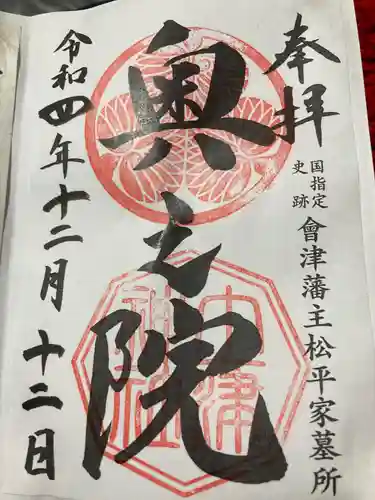 奉拝
国指定
史跡
會津藩主松平家墓所
奥之院
令和四年十二月十二日